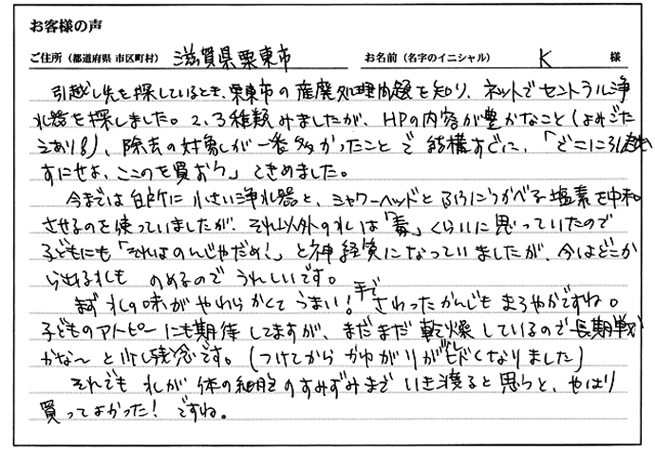 お客様の声
ご住所（都道府県 市区町村） 滋賀県栗東市 お名前（名字のイニシャル） K 様
引越し先を探しているとき、栗東市の産廃処理問題を知り、ネットでセントラル浄
水器を探しました。2、3種類みましたが、HPの内容が豊かなこと（よみごた
えあり!!）、除去の対象が一番多かったことで結構すぐに、「どこに引越
すにせよ、ここのを買おう」ときめました。
今までは台所に小さい浄水器と、シャワーヘッドとおふろにうかべる塩素を中和
させるのを使っていましたが、それ以外の水は「毒」くらいに思っていたので
子どもにも「それはのんじゃだめ!」と神経質になっていましたが、今はどこか
ら出る水も のめるので うれしいです。
まず 水の味が やわらかくて うまい! 手で さわったかんじも まろやかですね。
子どものアトピーにも期待してますが、まだまだ乾燥しているので長期戦
かな～と少し残念です。（つけてから かゆがりが ヒドくなりました）
それでも 水が 体の細胞のすみずみまで いき渡ると思うと、やはり
買ってよかった! ですね。